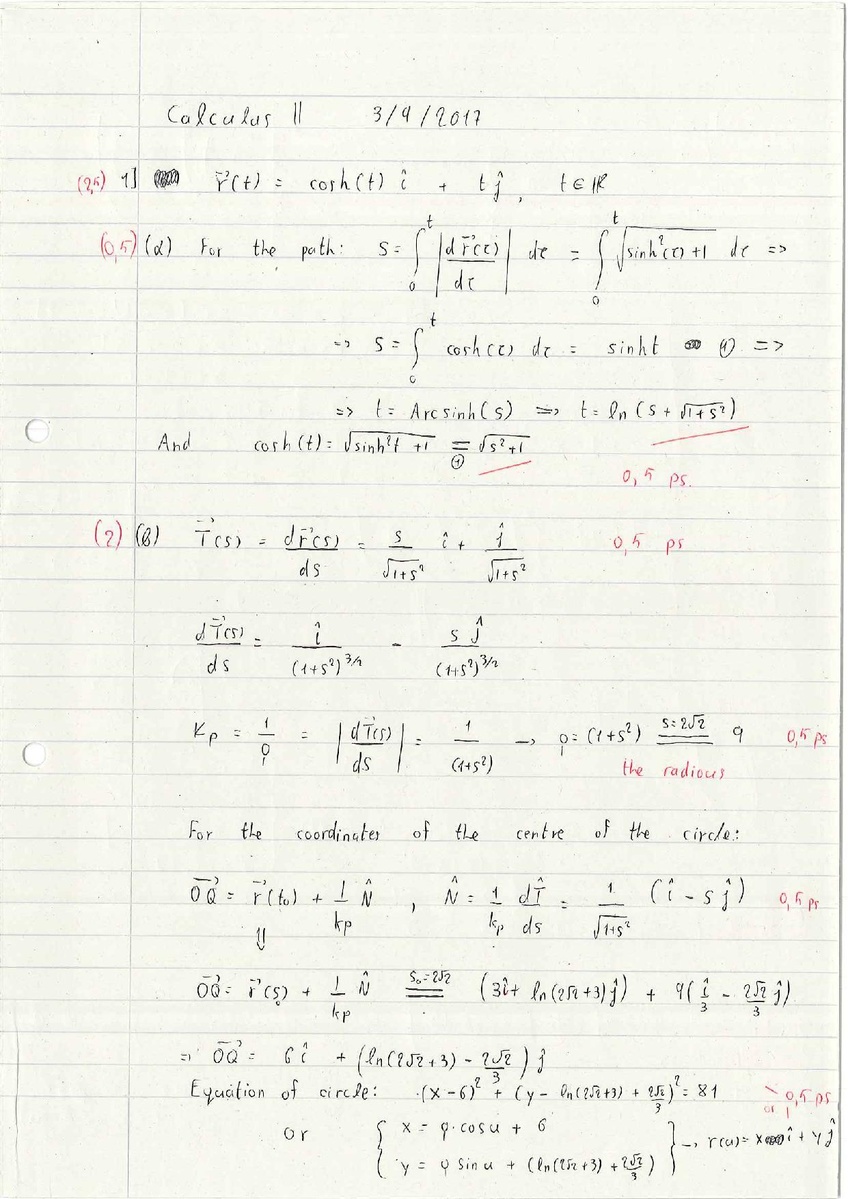 Calculus II 3/9/2017
(2,5) 1] r⃗(t) = cosh(t) î + t ĵ, t ∈ ℝ
(0,5) (α) For the path: S = ∫₀ᵗ |d r⃗(τ)/dτ| dτ = ∫₀ᵗ √(sinh²(τ)+1) dτ =>
=> S = ∫₀ᵗ cosh(τ) dτ = sinht ① =>
=> t = Arcsinh(s) => t = ln(s + √(1+s²))
And cosh(t) = √(sinh²t +1) =① √(s²+1)
0,5 ps.
(2) (β) T⃗(s) = d r⃗(s)/ds = s/√(1+s²) î + ĵ/√(1+s²) 0,5 ps
dT⃗(s)/ds = î/(1+s²)^3/2 - s ĵ/(1+s²)^3/2
Kp = 1/ρ = |dT⃗(s)/ds| = 1/(1+s²) → ρ = (1+s²) =(s=2√2) 9 0,5 ps
the radious
For the coordinates of the centre of the circle:
OQ⃗ = r⃗(t₀) + 1/kp N̂ , N̂ = 1/kp dT̂/ds = 1/√(1+s²) (î - s ĵ) 0,5 ps
⇓
OQ⃗ = r⃗(s₀) + 1/kp N̂ =(s₀=2√2) (3î + ln(2√2+3)ĵ) + 9(î/3 - 2√2/3 ĵ)
=> OQ⃗ = 6 î + (ln(2√2+3) - 2√2/3) ĵ
Equation of circle: (x-6)² + (y - ln(2√2+3) + 2√2/3)² = 81 0,5 ps
or { x = 9·cosu + 6
y = 9 sinu + (ln(2√2+3) + 2√2/3) } → r(u) = x î + y ĵ